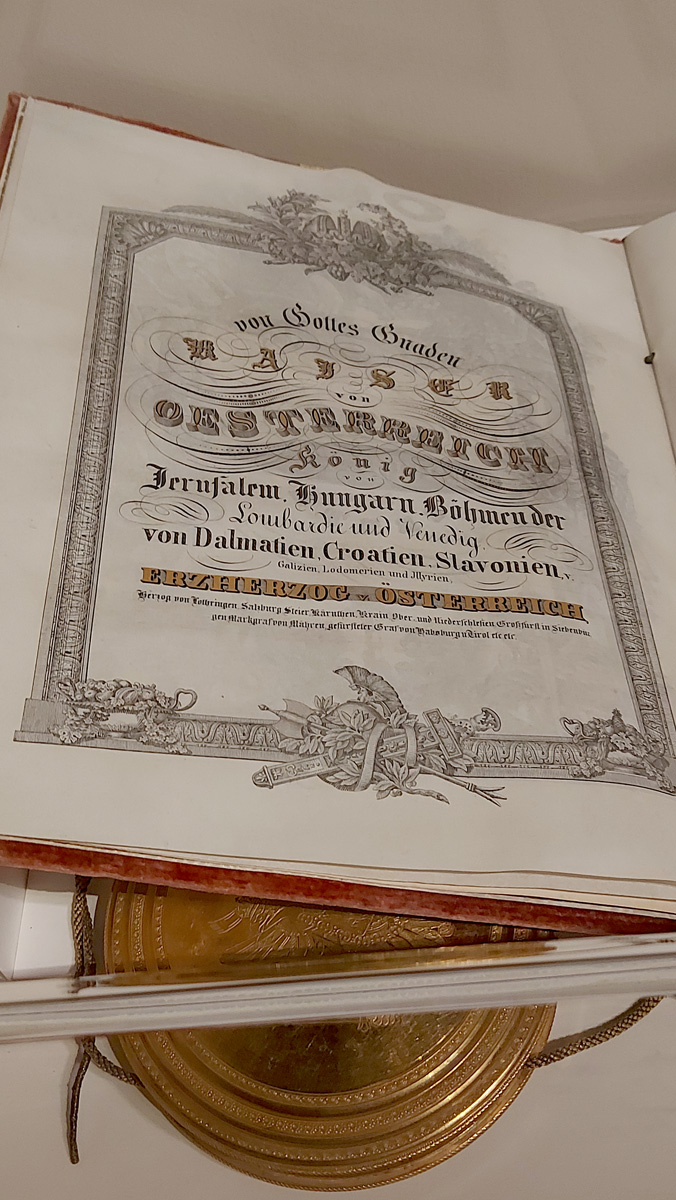 von Gottes Gnaden
KAISER
von
OESTERREICH
König
von
Jerusalem, Hungarn, Böhmen der
Lombardie und Venedig,
von Dalmatien, Croatien, Slavonien, v.
Galizien, Lodomerien und Illyrien,
ERZHERZOG v. ÖSTERREICH
Herzog von Lothringen, Salzburg Steier, Kärnthen, Krain, Ober- und Niederschlesien, Großfürst in Siebenbür
gen Markgraf von Mähren, gefürsteter Graf von Habsburg u Tirol etc etc.